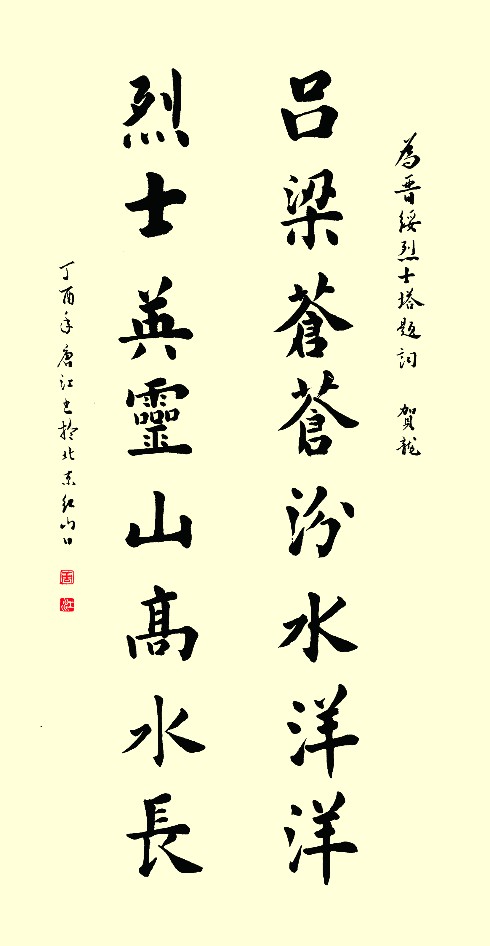 為晋綏烈士塔題詞 賀龍
吕梁蒼蒼汾水洋洋
烈士英靈山高水長
丁酉年唐江书於北京红山口